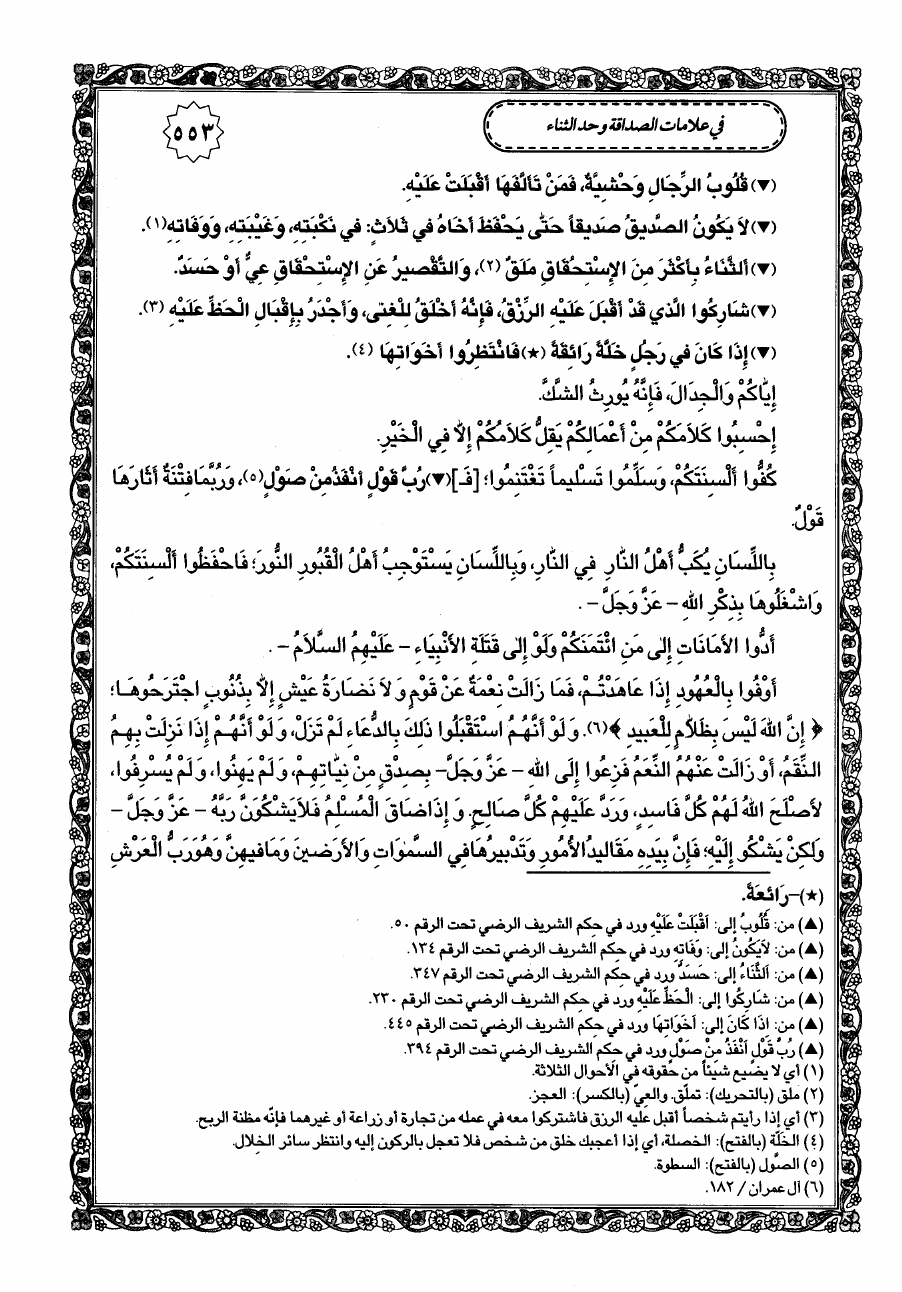 في علامات الصداقة وحد الثناء
٥٥٣
(▼) قُلُوبُ الرِّجَالِ وَحْشِيَّةٌ، فَمَنْ تَأَلَّفَهَا أَقْبَلَتْ عَلَيْهِ.
(▼) لاَ يَكُونُ الصَّديقُ صَديقاً حَتَّى يَحْفَظَ أَخَاهُ في ثَلاَثٍ: في نَكْبَتِهِ، وَغَيْبَتِهِ، وَوَفَاتِهِ(١).
(▼) اَلثَّنَاءُ بِأَكْثَرَ مِنَ الإِسْتِحْقَاقِ مَلَقٌ (٢)، وَالتَّقْصيرُ عَنِ الإِسْتِحْقَاقِ عِيٌّ أَوْ حَسَدٌ.
(▼) شَارِكُوا الَّذي قَدْ أَقْبَلَ عَلَيْهِ الرِّزْقُ، فَإِنَّهُ أَخْلَقُ لِلْغِنى، وَأَجْدَرُ بِإِقْبَالِ الْحَظِّ عَلَيْهِ (٣).
(▼) إِذَا كَانَ في رَجُلٍ خَلَّةٌ رَائِقَةٌ (★) فَانْتَظِرُوا أَخَوَاتِهَا (٤).
إِيَّاكُمْ وَالْجِدَالَ، فَإِنَّهُ يُورِثُ الشَّكَّ.
إِحْسِبُوا كَلاَمَكُمْ مِنْ أَعْمَالِكُمْ يَقِلُّ كَلاَمُكُمْ إِلاَّ فِي الْخَيْرِ.
كُفُّوا أَلْسِنَتَكُمْ، وَسَلِّمُوا تَسْليماً تَغْتَنِمُوا؛ [فَـ] (▼) رُبَّ قَوْلٍ أَنْفَذُ مِنْ صَوْلٍ(٥)، وَرُبَّمَا فِتْنَةٌ أَثَارَهَا
قَوْلٌ.
بِاللِّسَانِ يُكَبُّ أَهْلُ النَّارِ فِي النَّارِ، وَبِاللِّسَانِ يَسْتَوْجِبُ أَهْلُ الْقُبُورِ النُّورَ؛ فَاحْفَظُوا أَلْسِنَتَكُمْ،
وَاشْغَلُوهَا بِذِكْرِ اللهِ - عَزَّ وَجَلَّ - .
أَدُّوا الأَمَانَاتِ إِلى مَنِ ائْتَمَنَكُمْ وَلَوْ إِلى قَتَلَةِ الأَنْبِيَاءِ - عَلَيْهِمُ السَّلاَمُ - .
أَوْفُوا بِالْعُهُودِ إِذَا عَاهَدْتُمْ، فَمَا زَالَتْ نِعْمَةٌ عَنْ قَوْمٍ وَلاَ نَضَارَةُ عَيْشٍ إِلاَّ بِذُنُوبٍ اجْتَرَحُوهَا؛
﴿ إِنَّ اللهَ لَيْسَ بِظَلاَّمٍ لِلْعَبيدِ ﴾(٦). وَلَوْ أَنَّهُمُ اسْتَقْبَلُوا ذَلِكَ بِالدُّعَاءِ لَمْ تَزَلْ، وَلَوْ أَنَّهُمْ إِذَا نَزَلَتْ بِهِمُ
النِّقَمُ، أَوْ زَالَتْ عَنْهُمُ النِّعَمُ فَزِعُوا إِلَى اللهِ - عَزَّ وَجَلَّ- بِصِدْقٍ مِنْ نِيَّاتِهِمْ، وَلَمْ يَهِنُوا، وَلَمْ يُسْرِفُوا،
لأَصْلَحَ اللهُ لَهُمْ كُلَّ فَاسِدٍ، وَرَدَّ عَلَيْهِمْ كُلَّ صَالِحٍ. وَ إِذَا ضَاقَ الْمُسْلِمُ فَلاَ يَشْكُوَنَّ رَبَّهُ - عَزَّ وَجَلَّ -
وَلكِنْ يَشْكُو إِلَيْهِ؛ فَإِنَّ بِيَدِهِ مَقَاليدُ الأُمُورِ وَتَدْبيرُهَا فِي السَّموَاتِ وَالأَرَضينَ وَمَا فيهِنَّ وَهُوَ رَبُّ الْعَرْشِ
(★)-رَائِعَةٌ.
(▲) من: قُلُوبُ إلى: أَقْبَلَتْ عَلَيْهِ ورد في حكم الشريف الرضي تحت الرقم ٥٠.
(▲) من: لاَ يَكُونُ إلى: وَفَاتِهِ ورد في حكم الشريف الرضي تحت الرقم ١٣٤.
(▲) من: اَلثَّنَاءُ إلى: حَسَدٌ ورد في حكم الشريف الرضي تحت الرقم ٣٤٧.
(▲) من: شَارِكُوا إلى: الْحَظِّ عَلَيْهِ ورد في حكم الشريف الرضي تحت الرقم ٢٣٠.
(▲) من: اذَا كَانَ إلى: أَخَوَاتِهَا ورد في حكم الشريف الرضي تحت الرقم ٤٤٥.
(▲) رُبَّ قَوْلٍ أَنْفَذُ مِنْ صَوْلٍ ورد في حكم الشريف الرضي تحت الرقم ٣٩٤.
(١) أي لا يضيع شيئاً من حقوقه في الأحوال الثلاثة.
(٢) ملق (بالتحريك): تملّق. والعيّ (بالكسر): العجز.
(٣) أي إذا رأيتم شخصاً أقبل عليه الرزق فاشتركوا معه في عمله من تجارة أو زراعة أو غيرهما فإنّه مظنة الربح.
(٤) الخَلّة (بالفتح): الخصلة، أي إذا أعجبك خلق من شخص فلا تعجل بالركون إليه وانتظر سائر الخلال.
(٥) الصَّول (بالفتح): السطوة.
(٦) آل عمران / ١٨٢.